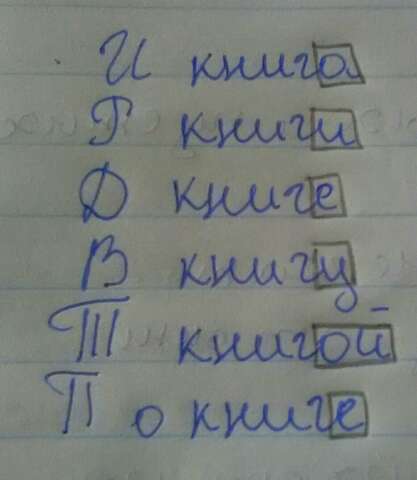 И книга
Р книги
Д книге
В книгу
Т книгой
П о книге